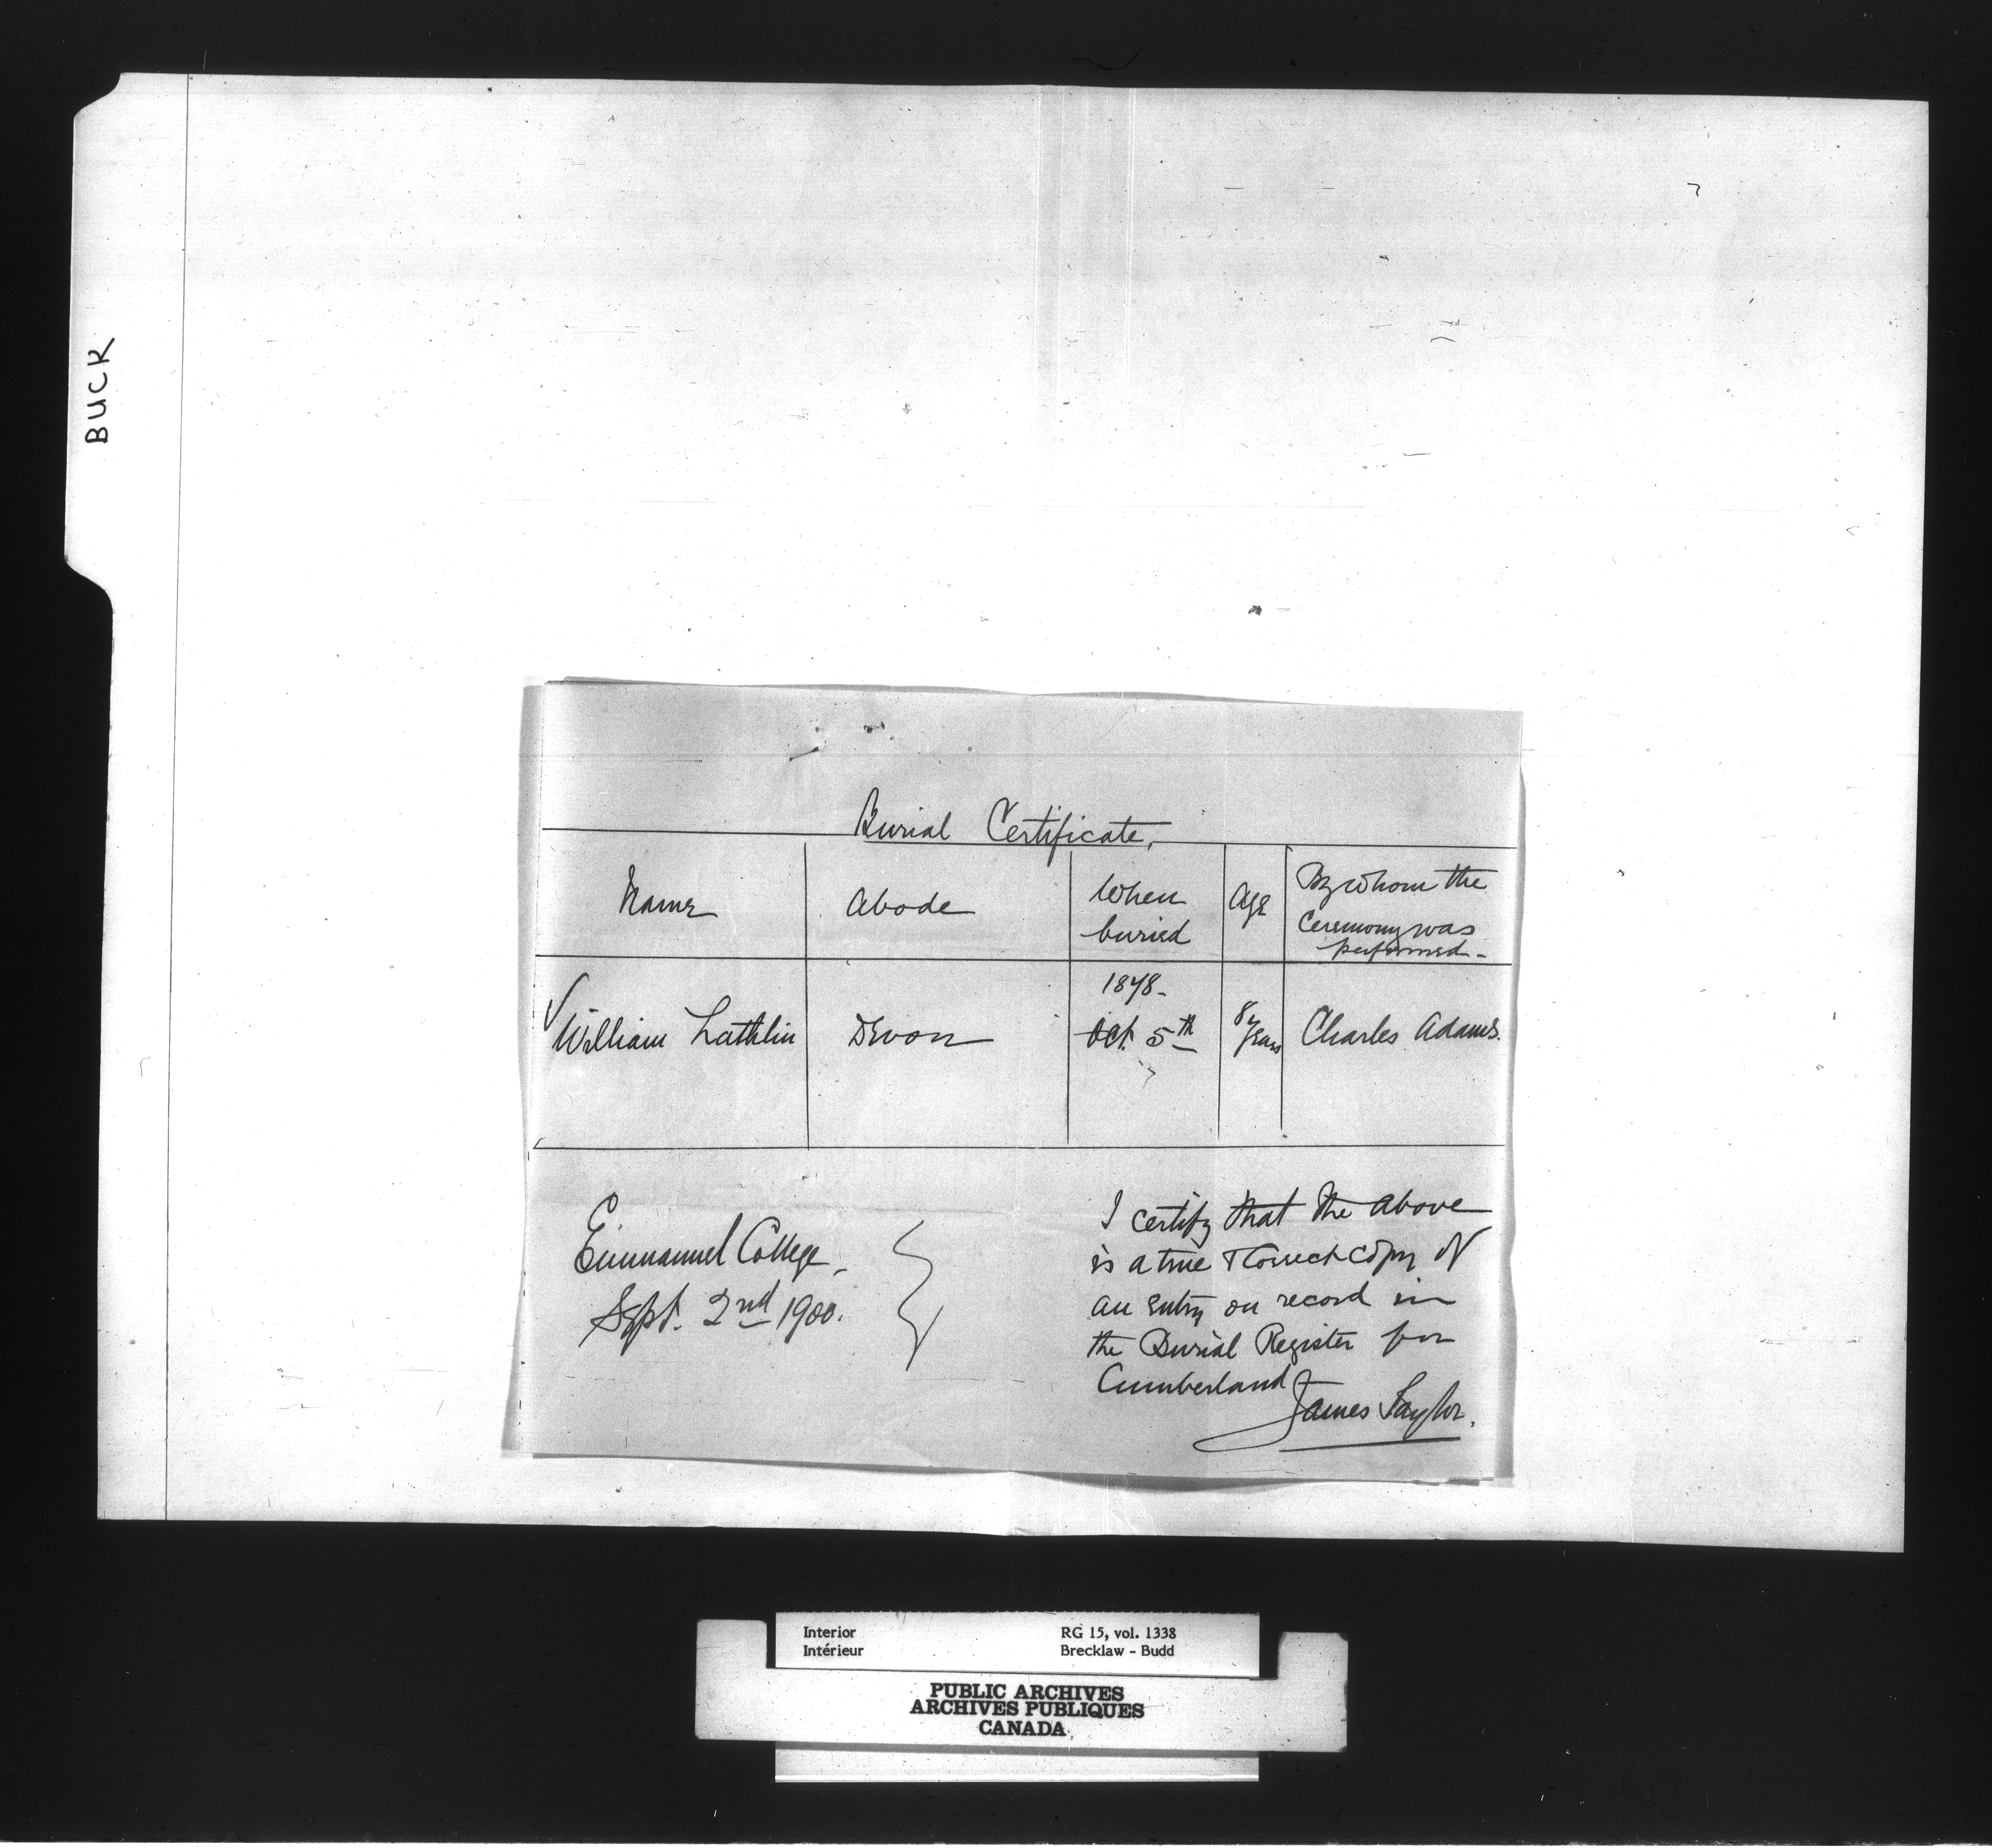 BUCK
Burial Certificate.
Name
Abode
When
buried
Age
By whom the
Ceremony was
performed-
1878-
William Lathlin
Devon
Oct. 5th
8 years
Charles Adams.
Emmanuel College,
Sept. 2nd 1900.
I certify that the above
is a true & Correct copy of
an entry on record in
the Burial Register for
Cumberland
James Taylor.
Interior
Intérieur
RG 15, vol. 1338
Brecklaw - Budd
PUBLIC ARCHIVES
ARCHIVES PUBLIQUES
CANADA